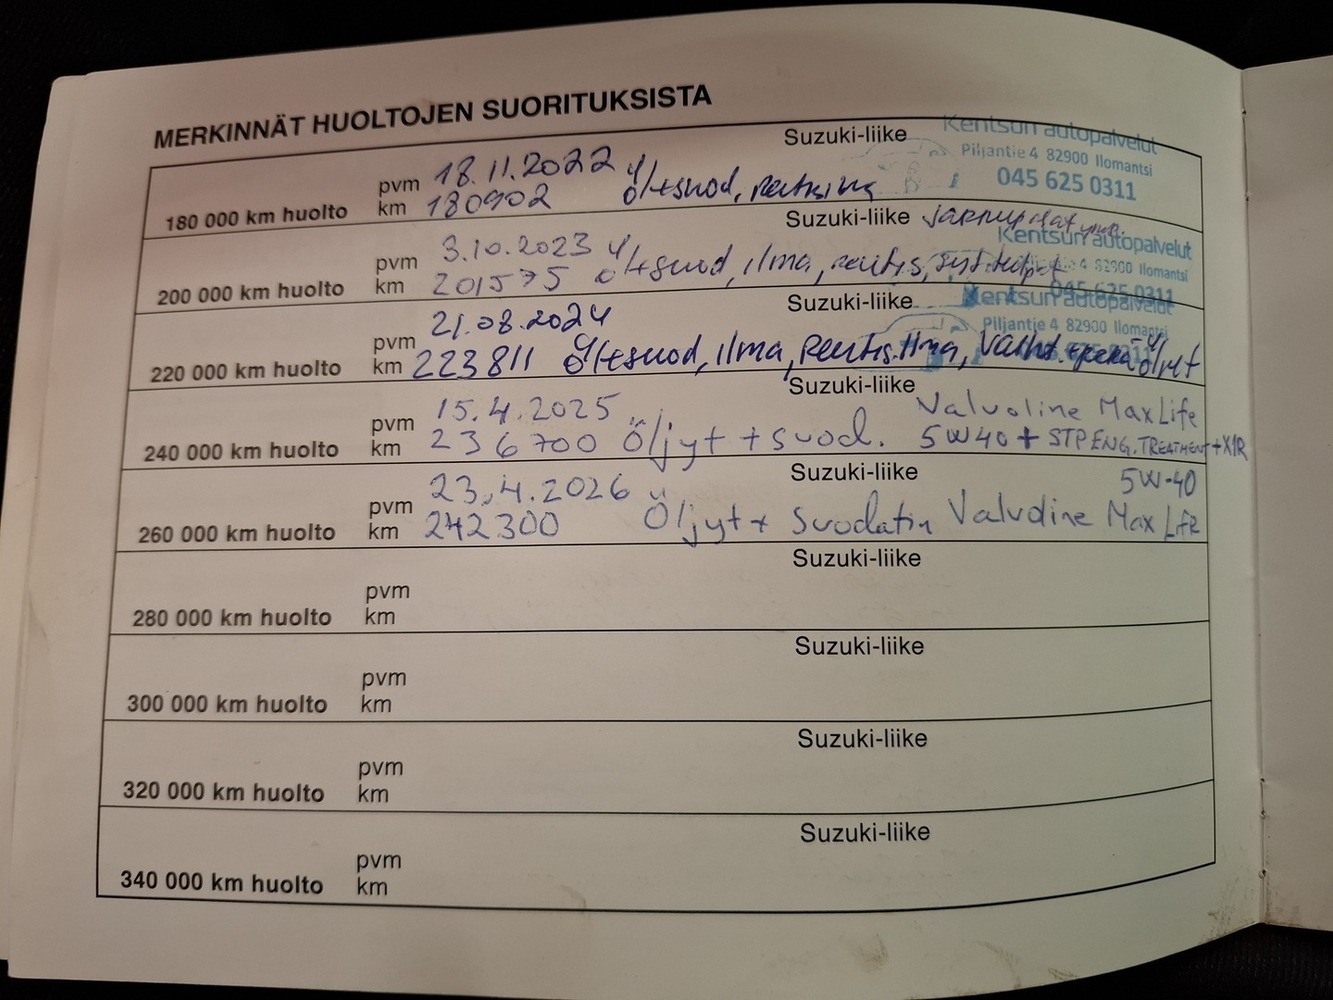 MERKINNÄT HUOLTOJEN SUORITUKSISTA
Suzuki-liike
Kentsun autopalvelut
Piljantie 4 82900 Ilomantsi
045 625 0311
180 000 km huolto
pvm 18.11.2022
km 180902
Suzuki-liike
Kentsun autopalvelut
82900 Ilomantsi
045 625 0311
200 000 km huolto
pvm 3.10.2023
km 201575 ilma,
Suzuki-liike
Kentsun autopalvelut
Piljantie 4 82900 Ilomantsi
220 000 km huolto
pvm 21.08.2024
km 223811 ilma,
Suzuki-liike
240 000 km huolto
pvm 15.4.2025 Valvoline MaxLife
km 236700 Öljyt + suod. 5W40 + STP ENG. TREATMENT + X1R
Suzuki-liike
260 000 km huolto
pvm 23.4.2026 5W-40
km 242300 Öljyt + Suodatin Valvoline Max Life
Suzuki-liike
280 000 km huolto
pvm
km
Suzuki-liike
300 000 km huolto
pvm
km
Suzuki-liike
320 000 km huolto
pvm
km
Suzuki-liike
340 000 km huolto
pvm
km